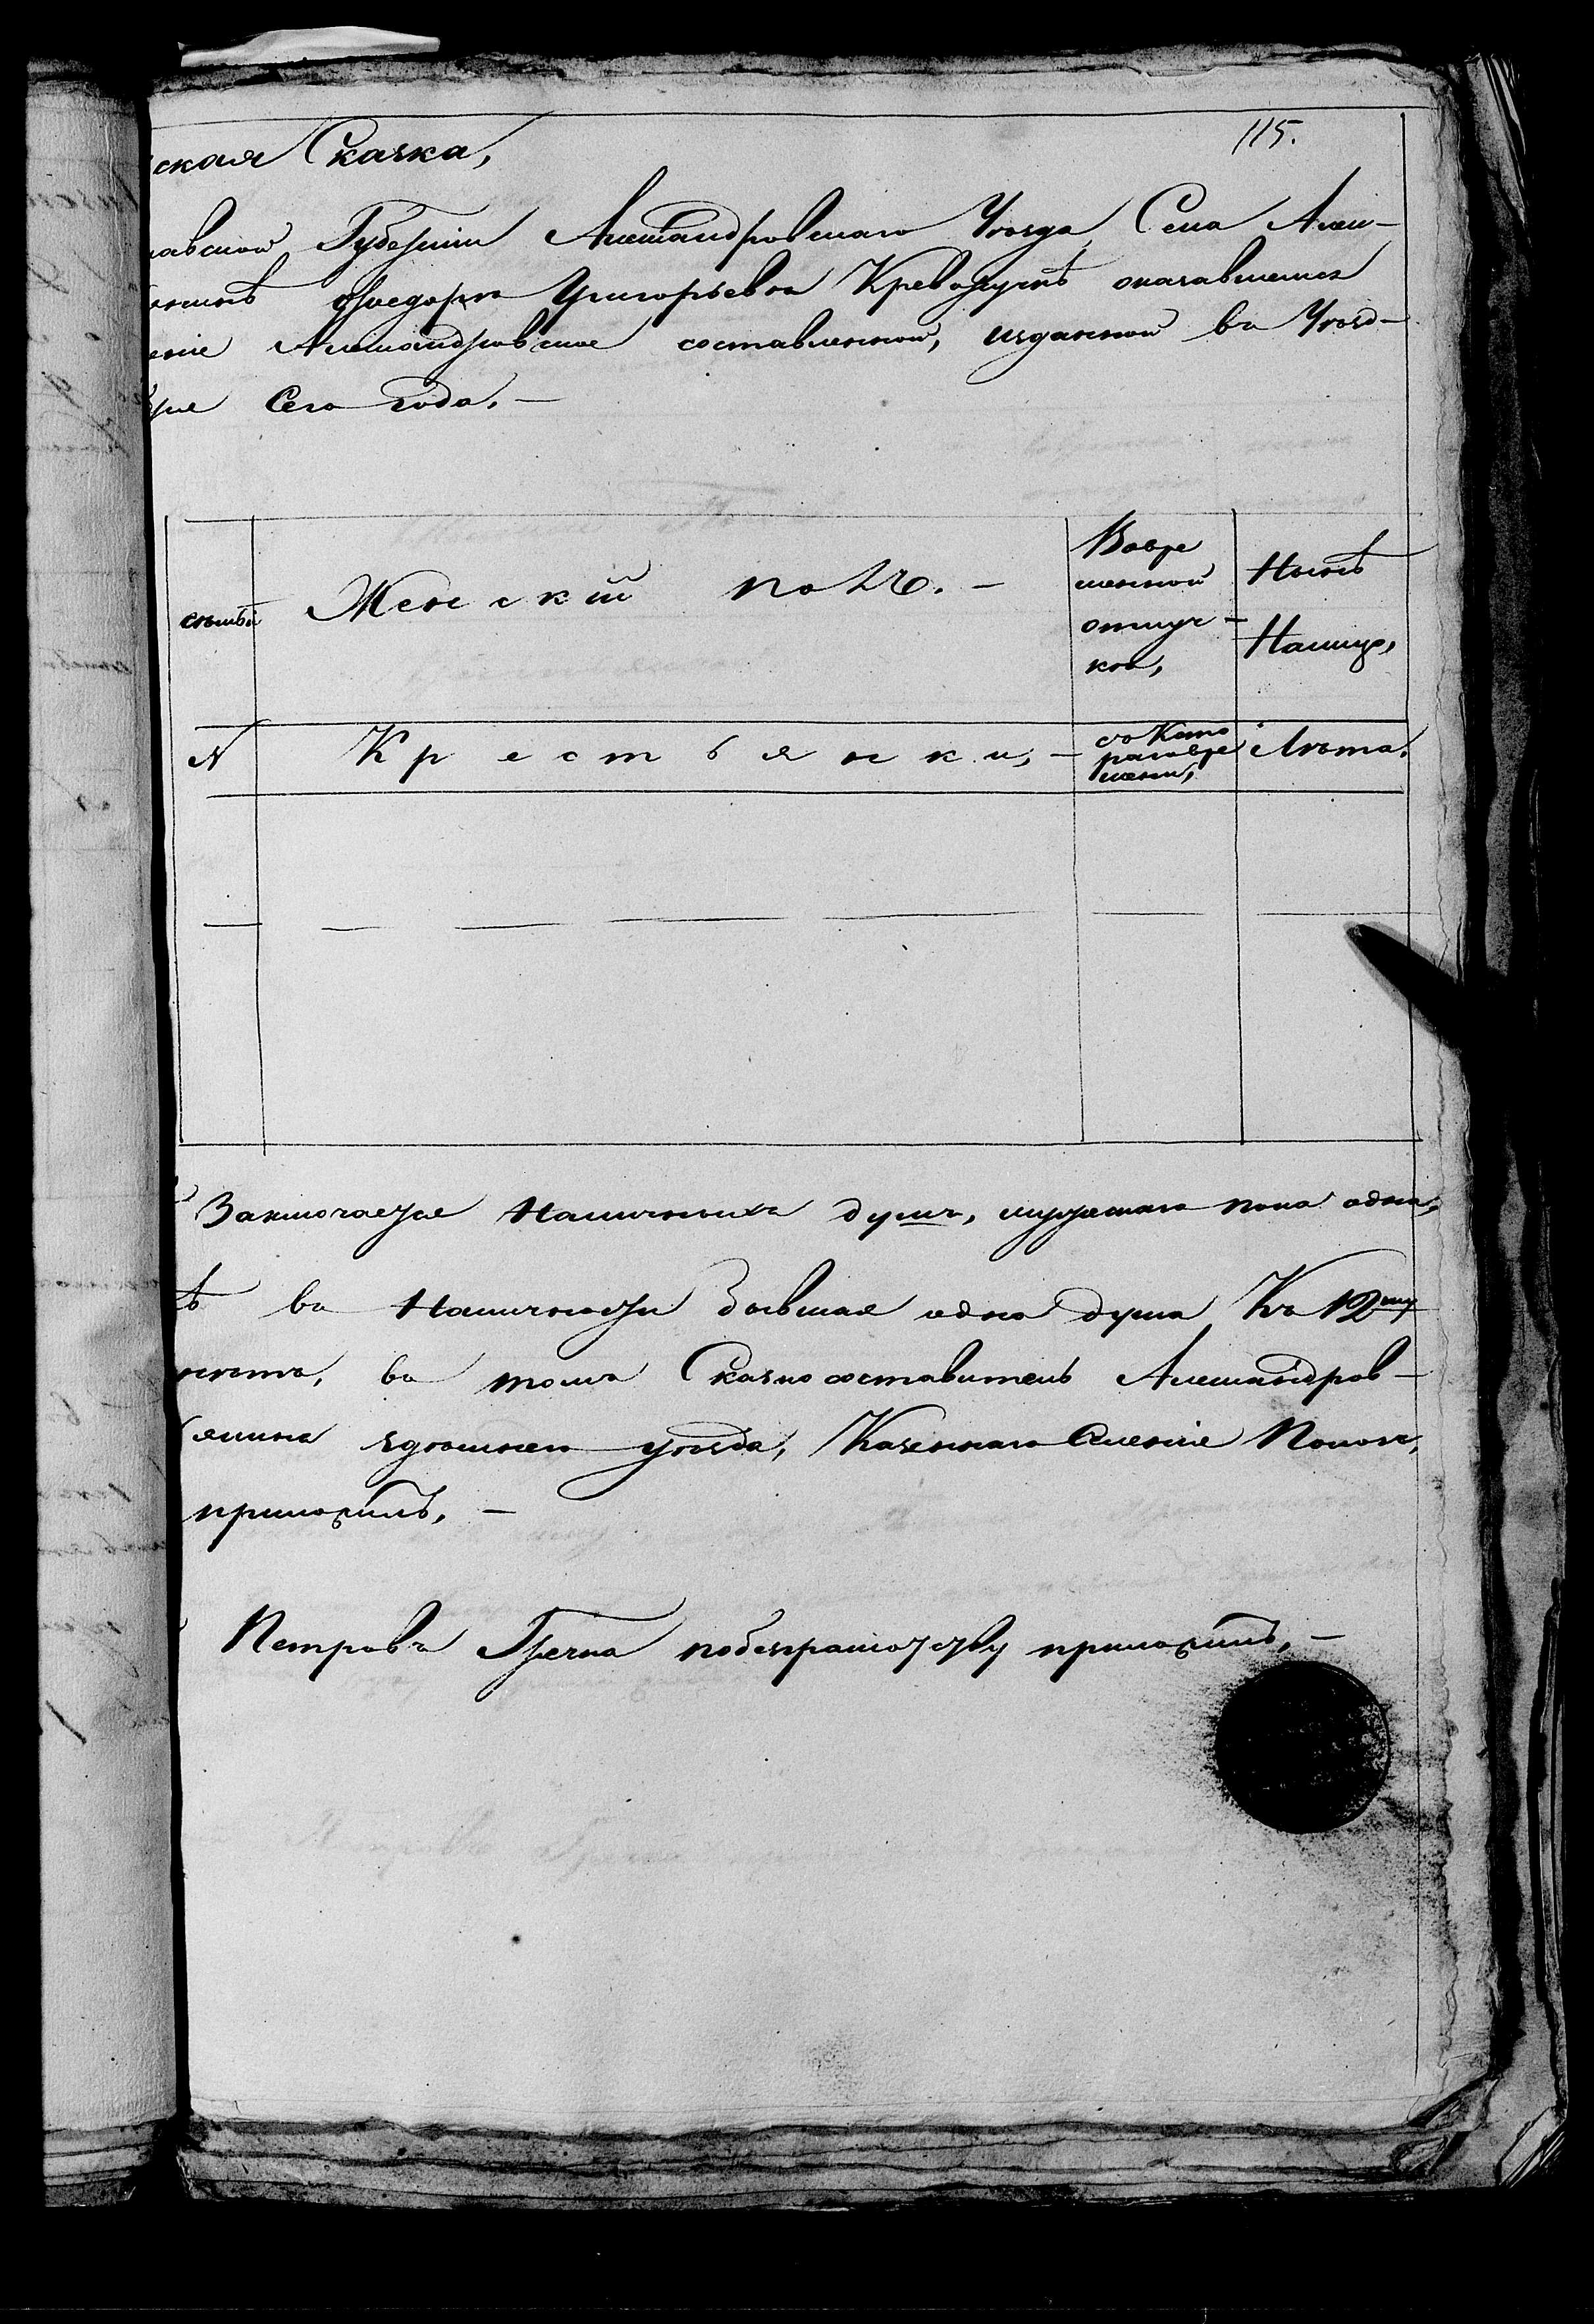 115.
ская Сказка,
авской Губерніи Александровскаго Уѣзда, Села Алек-
Фіодора Григорьева Креворучкѣ оказавшемся
еніе Александровское составленной, изданной въ Уѣзд-
Сего года. —
семьи
Женскій полъ. —
Вовре
менной
отлуч-
кѣ,
Нынѣ
На лицо,
N
Крестьянки, —
съ Кото
раго вре
мени,
Лѣта.
Заключается Наличныхъ душъ, мужеска пола одна,
ѣ въ Наличности бывшая одна душа Къ 12му
въ томъ Сказкосоставитель Александров-
здѣшнего уѣзда, Казеннаго Селеніе Пологъ,
приложилъ. —
Петровъ Гречка побезграмотству приложилъ. —